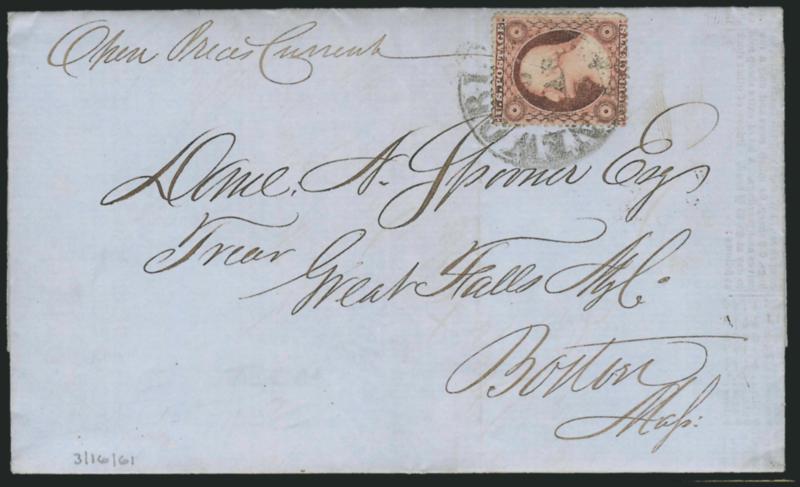 Open Prices Current
U.S. POSTAGE
THREE CENTS
NEW YORK
Danl. N. Spooner Esqr
Treasr
Great Falls Mfg Co.
Boston
Mass:
3/16/61